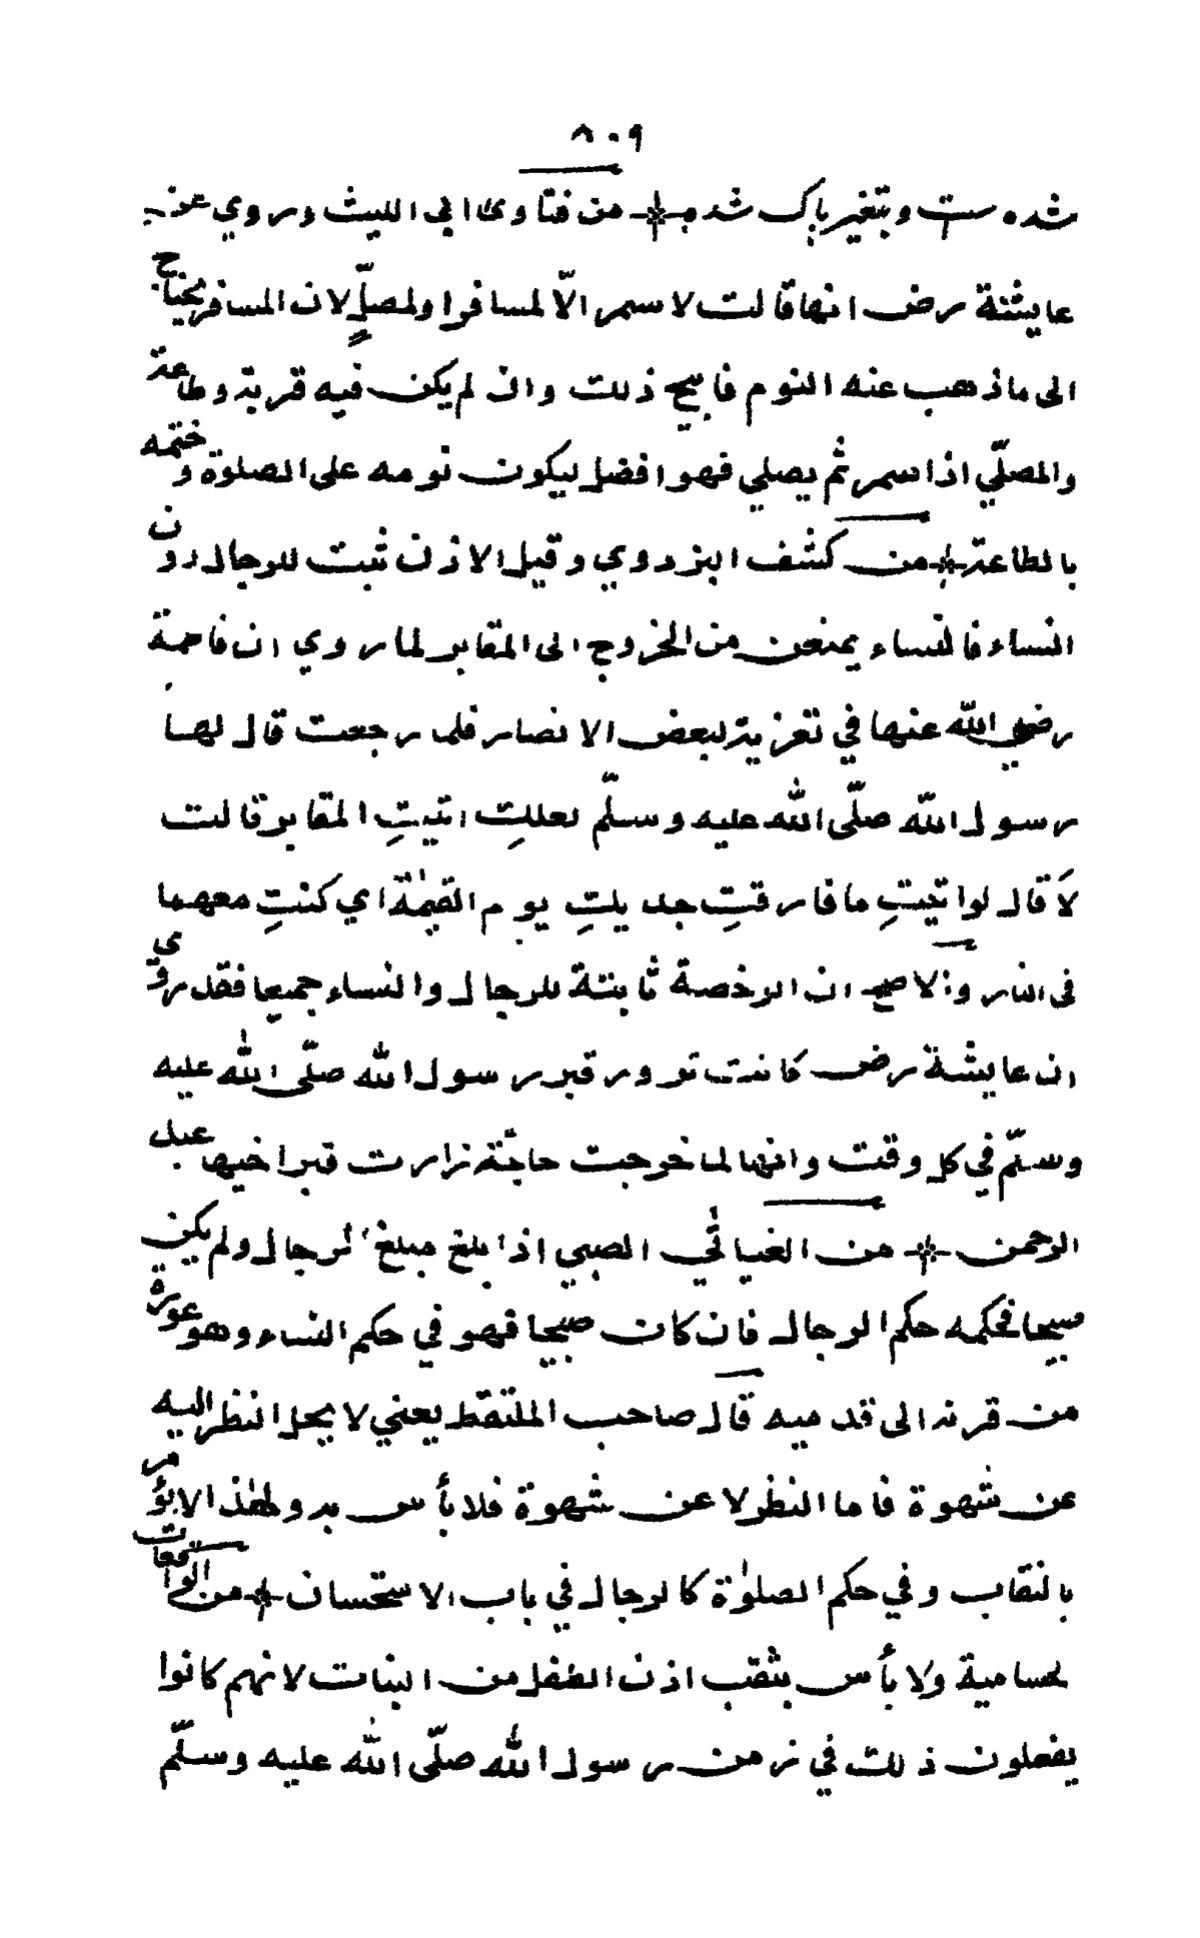 ٨٠٩
شده ست وبتغير پاك شد به من فتاوى ابى الليث وروي عن
عايشة رض انها قالت لا سمر الّا لمسافر او لمصلٍّ لان المسافر يحتاج
الى ما ذهب عنه النوم فابيح ذلك وان لم يكن فيه قربة وطاعة
والمصلّي اذا سمر ثم يصلي فهو افضل ليكون نومه على الصلوة وختمه
بالطاعة من كشف البزدوي وقيل الاذن ثبت للرجال دون
النساء فالنساء يمنعن من الخروج الى المقابر لما روي ان فاطمة
رضي الله عنها في تعزية لبعض الانصار فلما رجعت قال لها
رسول الله صلّى الله عليه وسلّم لعلكِ اتيتِ المقابر قالت
لَا قال لو اتيتِ ما فارقتِ جديكِ يوم القيٰمة اي كنتِ معهما
فى النار والاصح ان الرخصة ثابتة للرجال والنساء جميعا فقد روي
ان عايشة رض كانت تزور قبر رسول الله صلّى الله عليه
وسلّم في كل وقت وانها لما خرجت حاجّة زارت قبر اخيها عبد
الرحمن من الغياثي الصبي اذا بلغ مبلغ الرجال ولم يكن
صبيحا فحكمه حكم الرجال فان كان صبيحا فهو في حكم النساء وهو عورة
من قرنه الى قدميه قال صاحب الملتقط يعني لا يحل النظر اليه
عن شهوة فاما النظر لا عن شهوة فلا بأس به ولهذا لا يؤمر
بالنقاب وفي حكم الصلوٰة كالرجال في باب الاستحسان من الواقعات
لحسامية ولا بأس بثقب اذن الطفل من البنات لانهم كانوا
يفعلون ذلك في زمن رسول الله صلّى الله عليه وسلّم